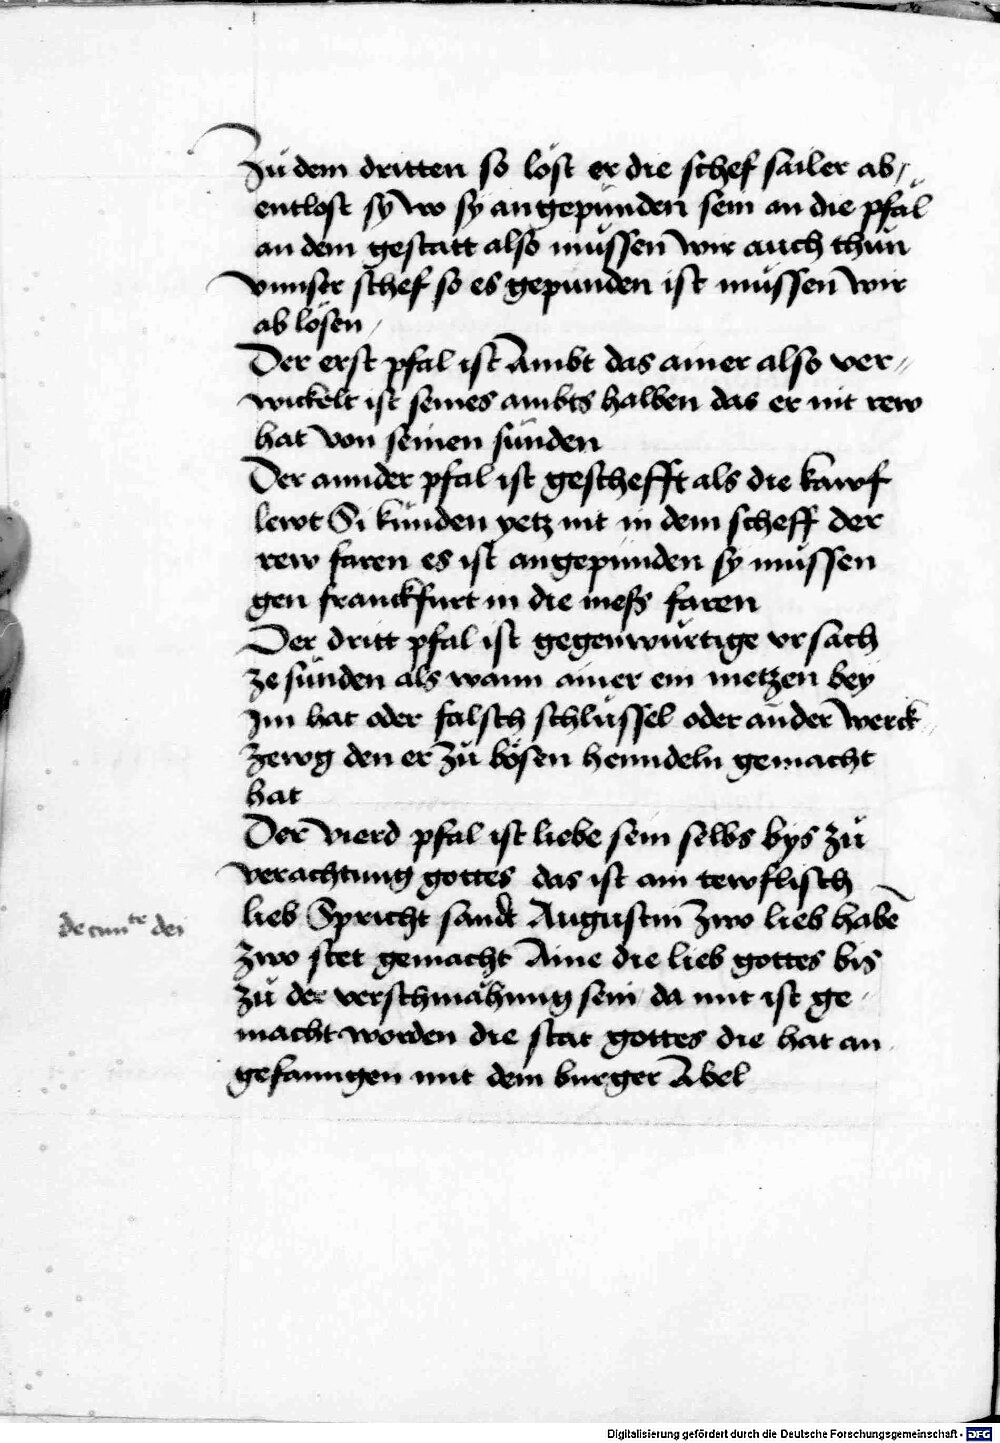 Zů dem dritten so löst er die schef sailer ab /
entlost sy wo sy angepůnden sein an die pfäl
an dem gestatt also můssen wir auch thůn
vnnser schef so es gepunden ist můssen wir
ab lösen /
Der erst pfal ist Ambt das ainer also ver-
wickelt ist seines ambts halben das er nit rew
hat von seinen sünden
Der annder pfal ist geschefft als die kawf
lewt Si künden yetz nit in dem scheff der
rew faren es ist angepunden sy müssen
gen franckfurt in die mess faren
Der dritt pfal ist gegenwürtige vrsach
ze sünden als wann ainer ein metzen bey
Im hat oder falsch schlüssel oder ander werck
zewg den er zů bösen henndeln gemacht
hat
Der vierd pfal ist liebe sein selbs bys zů
verachtung gottes das ist ain tewflisch
lieb Spricht sandt Augustin zwo lieb habē
de ciuite dei
zwo stet gemacht Aine die lieb gottes bis
zů der verschmähung sein da mit ist ge-
macht worden die stat gottes die hat an
gefanngen mit dem burger Abel
Digitalisierung gefördert durch die Deutsche Forschungsgemeinschaft - DFG